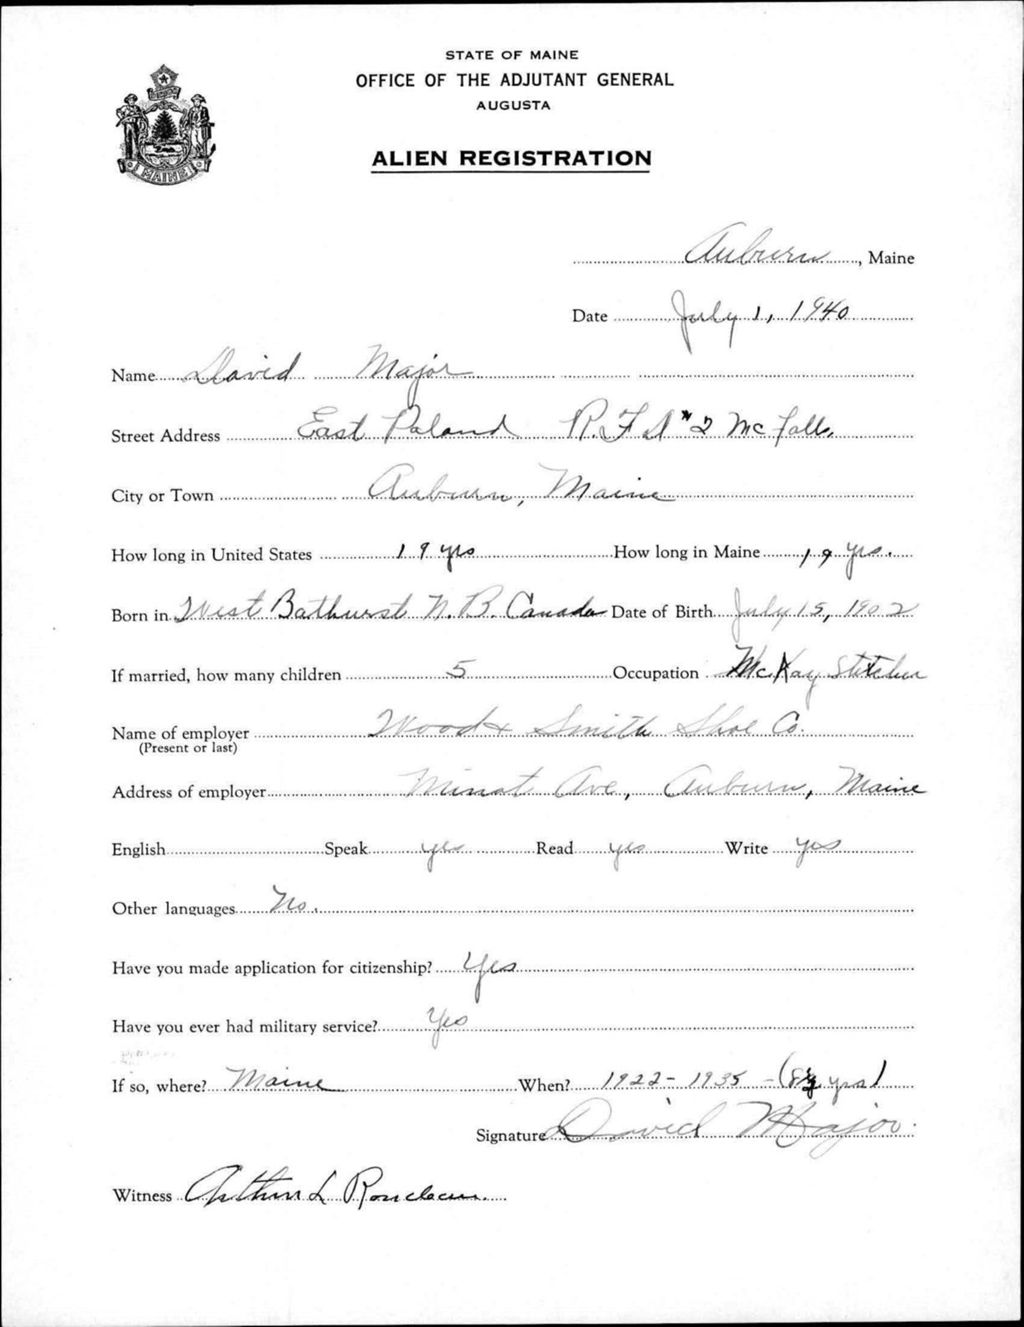 STATE OF MAINE
OFFICE OF THE ADJUTANT GENERAL
AUGUSTA
ALIEN REGISTRATION
MAINE
Auburn, Maine
Date July 1, 1940
Name David Major
Street Address East Poland R.F.D #2 Mc Falls.
City or Town Auburn, Maine
How long in United States 19 yrs How long in Maine 19 yrs.
Born in West Bathurst N.B. Canada Date of Birth July 15, 1902
If married, how many children 5 Occupation McKay Stitcher
Name of employer Wood & Smith Shoe Co.
(Present or last)
Address of employer Minot Ave, Auburn, Maine
English Speak yes Read yes Write yes
Other languages No.
Have you made application for citizenship? Yes
Have you ever had military service? Yes
If so, where? Maine When? 1922-1935 - (8½ yrs)
Signature David Major.
Witness Arthur L